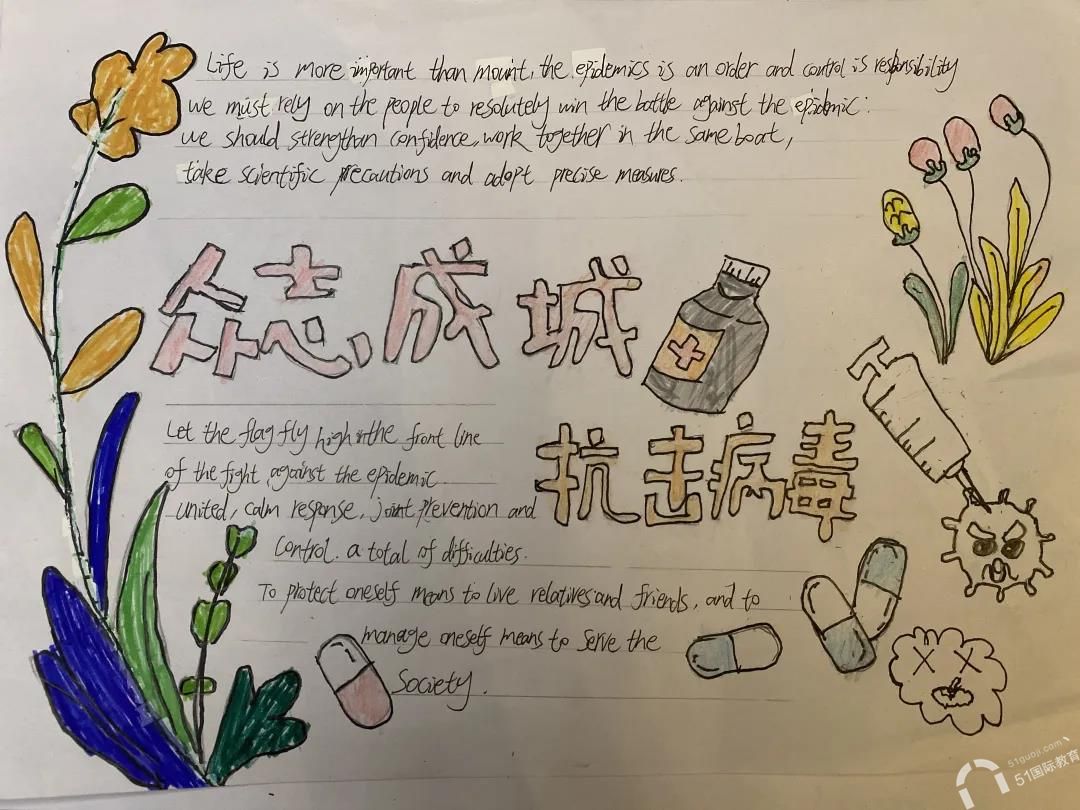 Life is more important than mount, the epidemics is an order and control is responsibility
we must rely on the people to resolutely win the battle against the epidemic:
we should strengthan confidence, work together in the same boat,
take scientific precautions and adopt precise measures.
众志成城
Let the flag fly high in the front line
of the fight, against the epidemic
united, calm response, joint prevention and
Control. a total of difficulties.
To protect oneself means to live relatives and friends, and to
manage oneself means to serve the
Society.
抗击病毒
51guoji.com
51国际教育